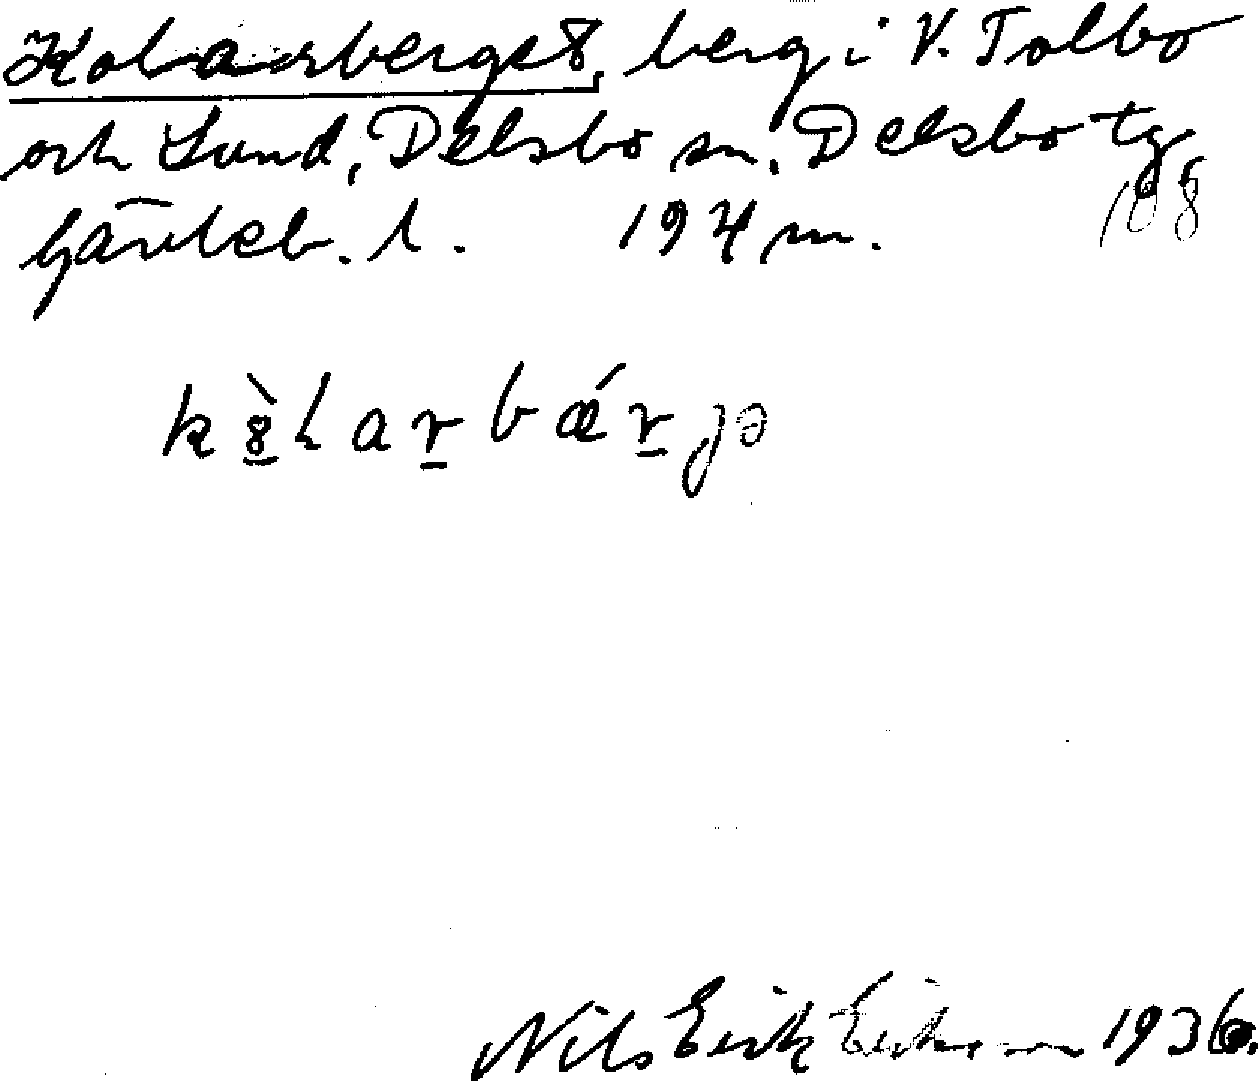 Kolarberget, berg i V. Tolbo
och Sund, Delsbo sn. Delsbo tg
Gävleb. l. 194 m. 108
Nils Erik Eriksson 1936.